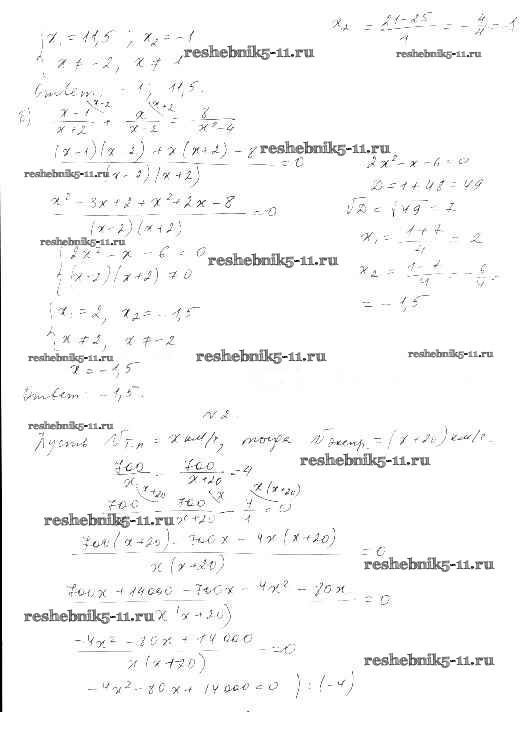 x₂ = (21-25)/4 = -4/4 = -1
{ x₁ = 11,5 ; x₂ = -1
reshebnik5-11.ru
reshebnik5-11.ru
x ≠ -2, x ≠ 1
Ответ: -1; 11,5.
б) (x-1)/(x+2) + x/(x-2) = 8/(x²-4)
((x-1)(x-2) + x(x+2) - 8)/((x-2)(x+2)) = 0
reshebnik5-11.ru
2x² - x - 6 = 0
reshebnik5-11.ru
D = 1 + 48 = 49
(x² - 3x + 2 + x² + 2x - 8)/((x-2)(x+2)) = 0
√D = √49 = 7
reshebnik5-11.ru
x₁ = (1+7)/4 = 2
{ 2x² - x - 6 = 0
reshebnik5-11.ru
(x-2)(x+2) ≠ 0
x₂ = (1-7)/4 = -6/4 =
= -1,5
{ x₁ = 2, x₂ = -1,5
x ≠ 2, x ≠ -2
reshebnik5-11.ru
reshebnik5-11.ru
reshebnik5-11.ru
x = -1,5
Ответ: -1,5.
№2.
reshebnik5-11.ru
Пусть Vт.п = x км/ч, тогда Vэкспр. = (x+20) км/ч.
reshebnik5-11.ru
700/x - 700/(x+20) = 4
700/x - 700/(x+20) - 4/1 = 0
reshebnik5-11.ru
(700(x+20) - 700x - 4x(x+20))/(x(x+20)) = 0
reshebnik5-11.ru
(700x + 14000 - 700x - 4x² - 80x)/(x(x+20)) = 0
reshebnik5-11.ru
reshebnik5-11.ru
(-4x² - 80x + 14000)/(x(x+20)) = 0
reshebnik5-11.ru
-4x² - 80x + 14000 = 0 ) : (-4)